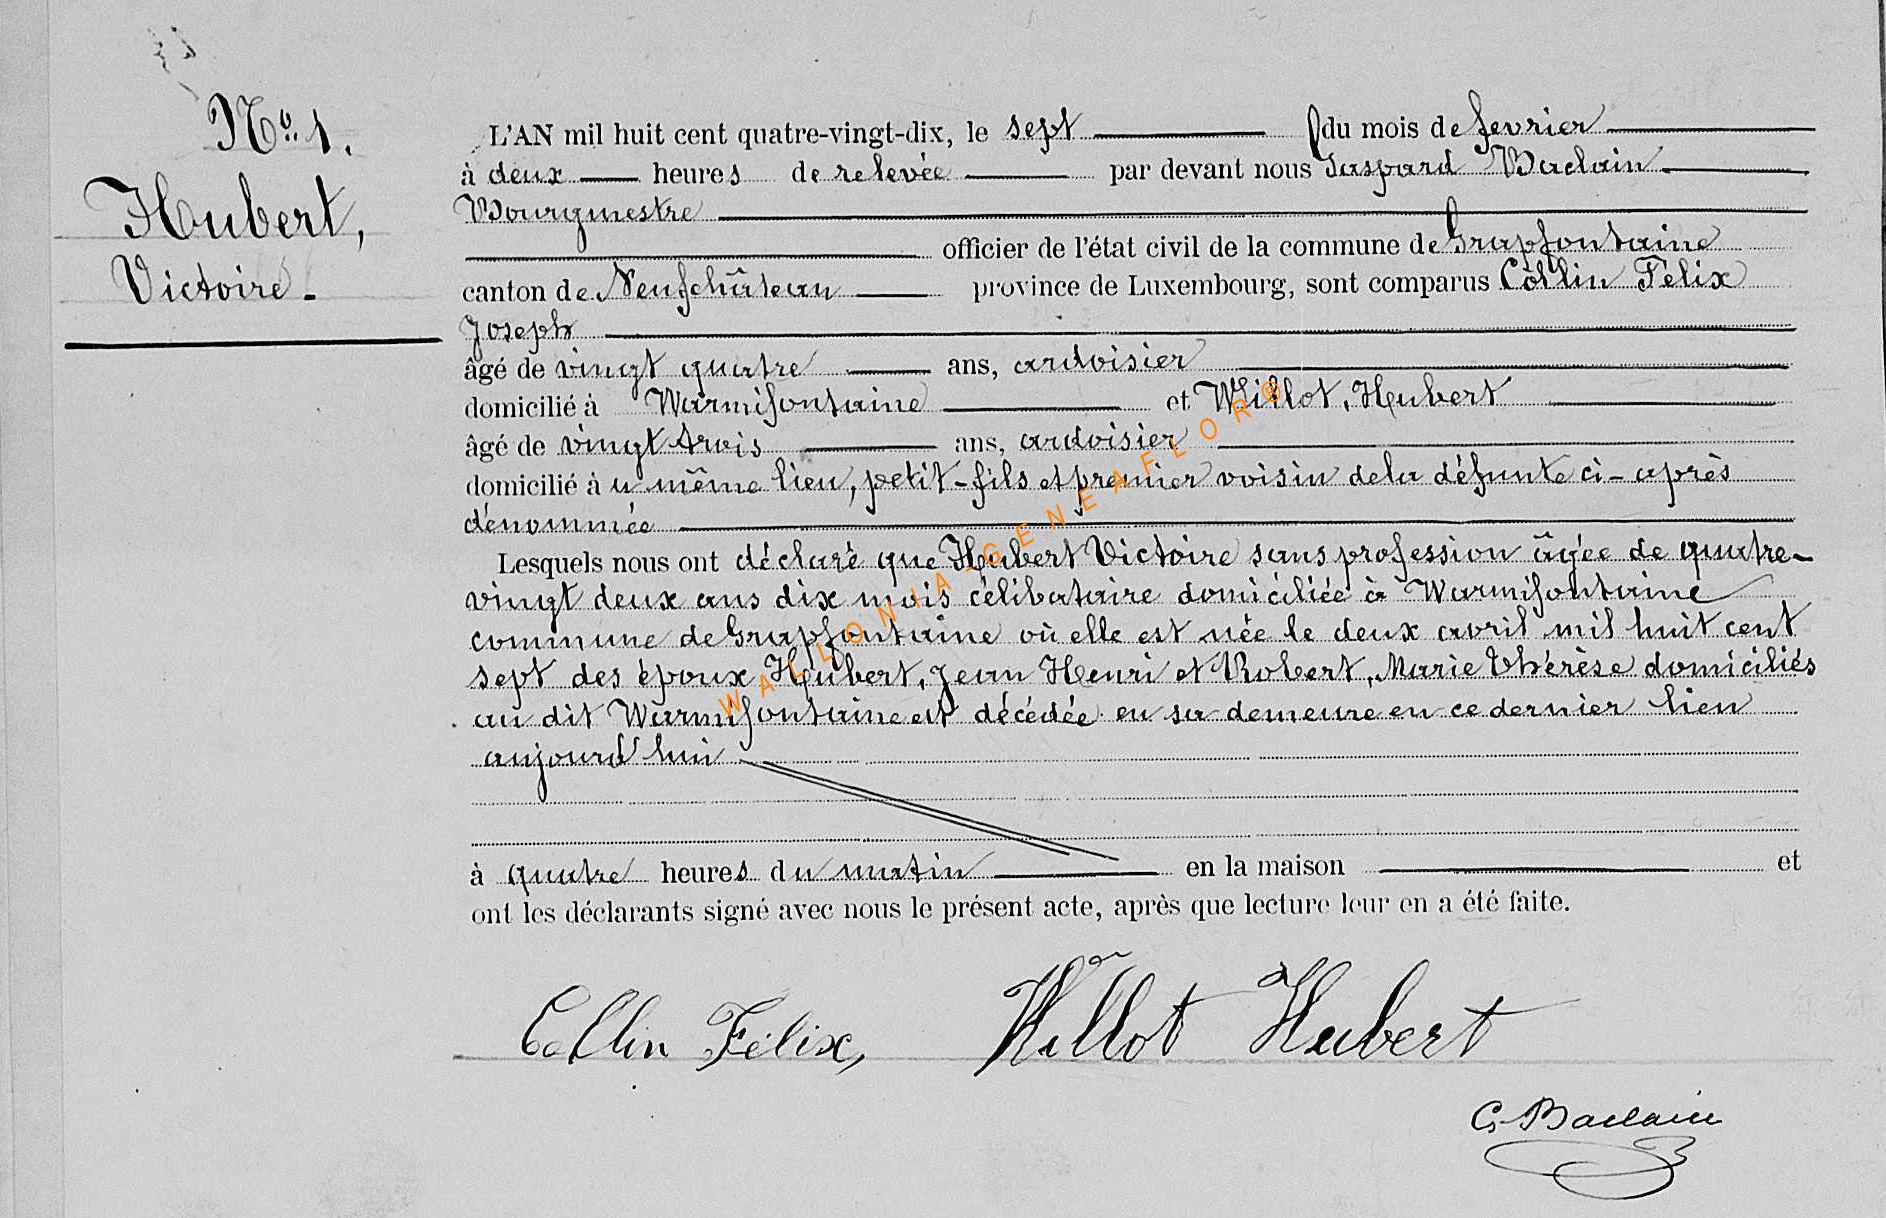 Nº 1.
Hubert,
Victoire.
L'AN mil huit cent quatre-vingt-dix, le sept du mois de fevrier
à deux heures de relevée par devant nous Gaspard Baclain
Bourgmestre
officier de l'état civil de la commune de Grapfontaine
canton de Neufchâteau province de Luxembourg, sont comparus Collin Félix
Joseph
âgé de vingt quatre ans, ardoisier
domicilié à Warmifontaine et Willot, Hubert
âgé de vingt trois ans, ardoisier
domicilié à u même lieu, petit-fils et premier voisin de la défunte ci-après
dénommée
Lesquels nous ont déclaré que Hubert Victoire sans profession âgée de quatre-
vingt deux ans dix mois célibataire domiciliée à Warmifontaine
commune de Grapfontaine où elle est née le deux avril mil huit cent
sept des époux Hubert, Jean Henri et Robert, Marie Thérèse domiciliés
au dit Warmifontaine est décédée en sa demeure en ce dernier lieu
aujourd'hui
à quatre heures du matin en la maison et
ont les déclarants signé avec nous le présent acte, après que lecture leur en a été faite.
Collin Félix, Willot Hubert
G. Baclain
WALLONIA-GENEAFLOR®